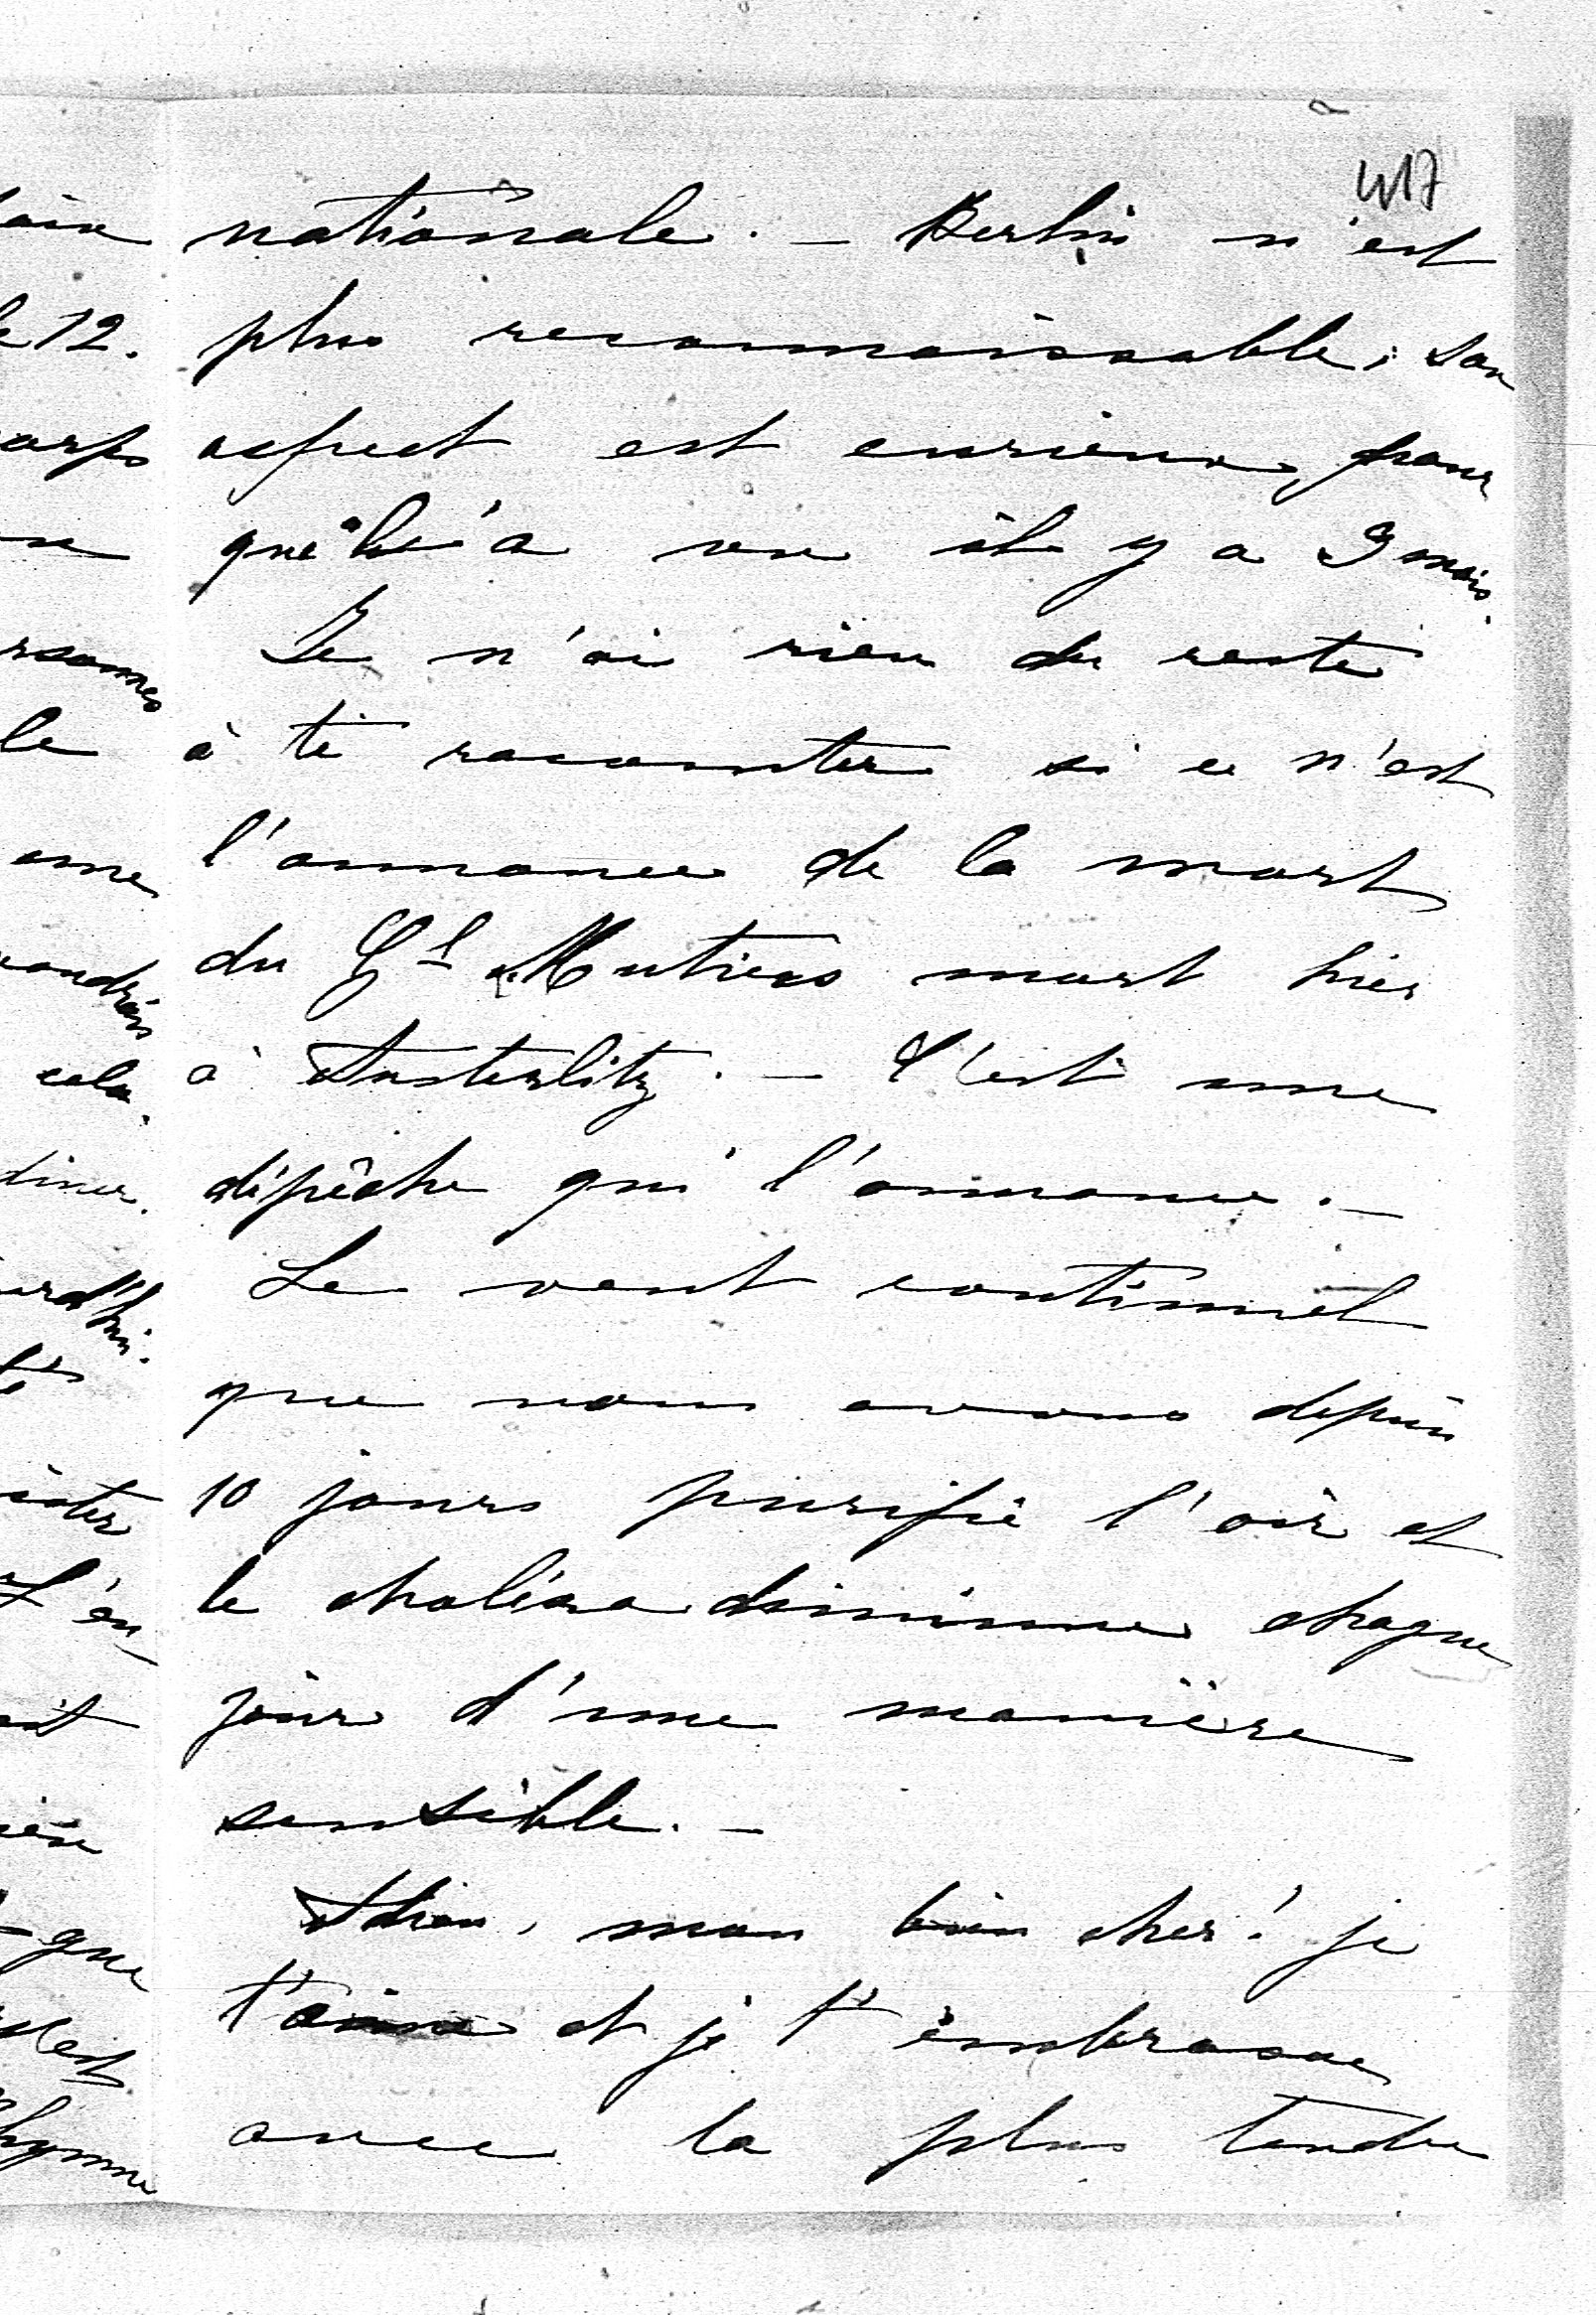 417
nationale. — Berlin n'est
plus reconnaissable; son
aspect est curieux pour
qui l'a vu il y a 3 mois.
Je n'ai rien du reste
à te raconter si ce n'est
l'annonce de la mort
du Gl Mutius mort hier
à Austerlitz. — C'est une
dépêche qui l'annonce. —
Le vent continuel
que nous avons depuis
10 jours purifie l'air et
le choléra diminue chaque
jour d'une manière
sensible. —
Adieu, mon bien cher! je
t'aime et je t'embrasse
avec la plus tendre